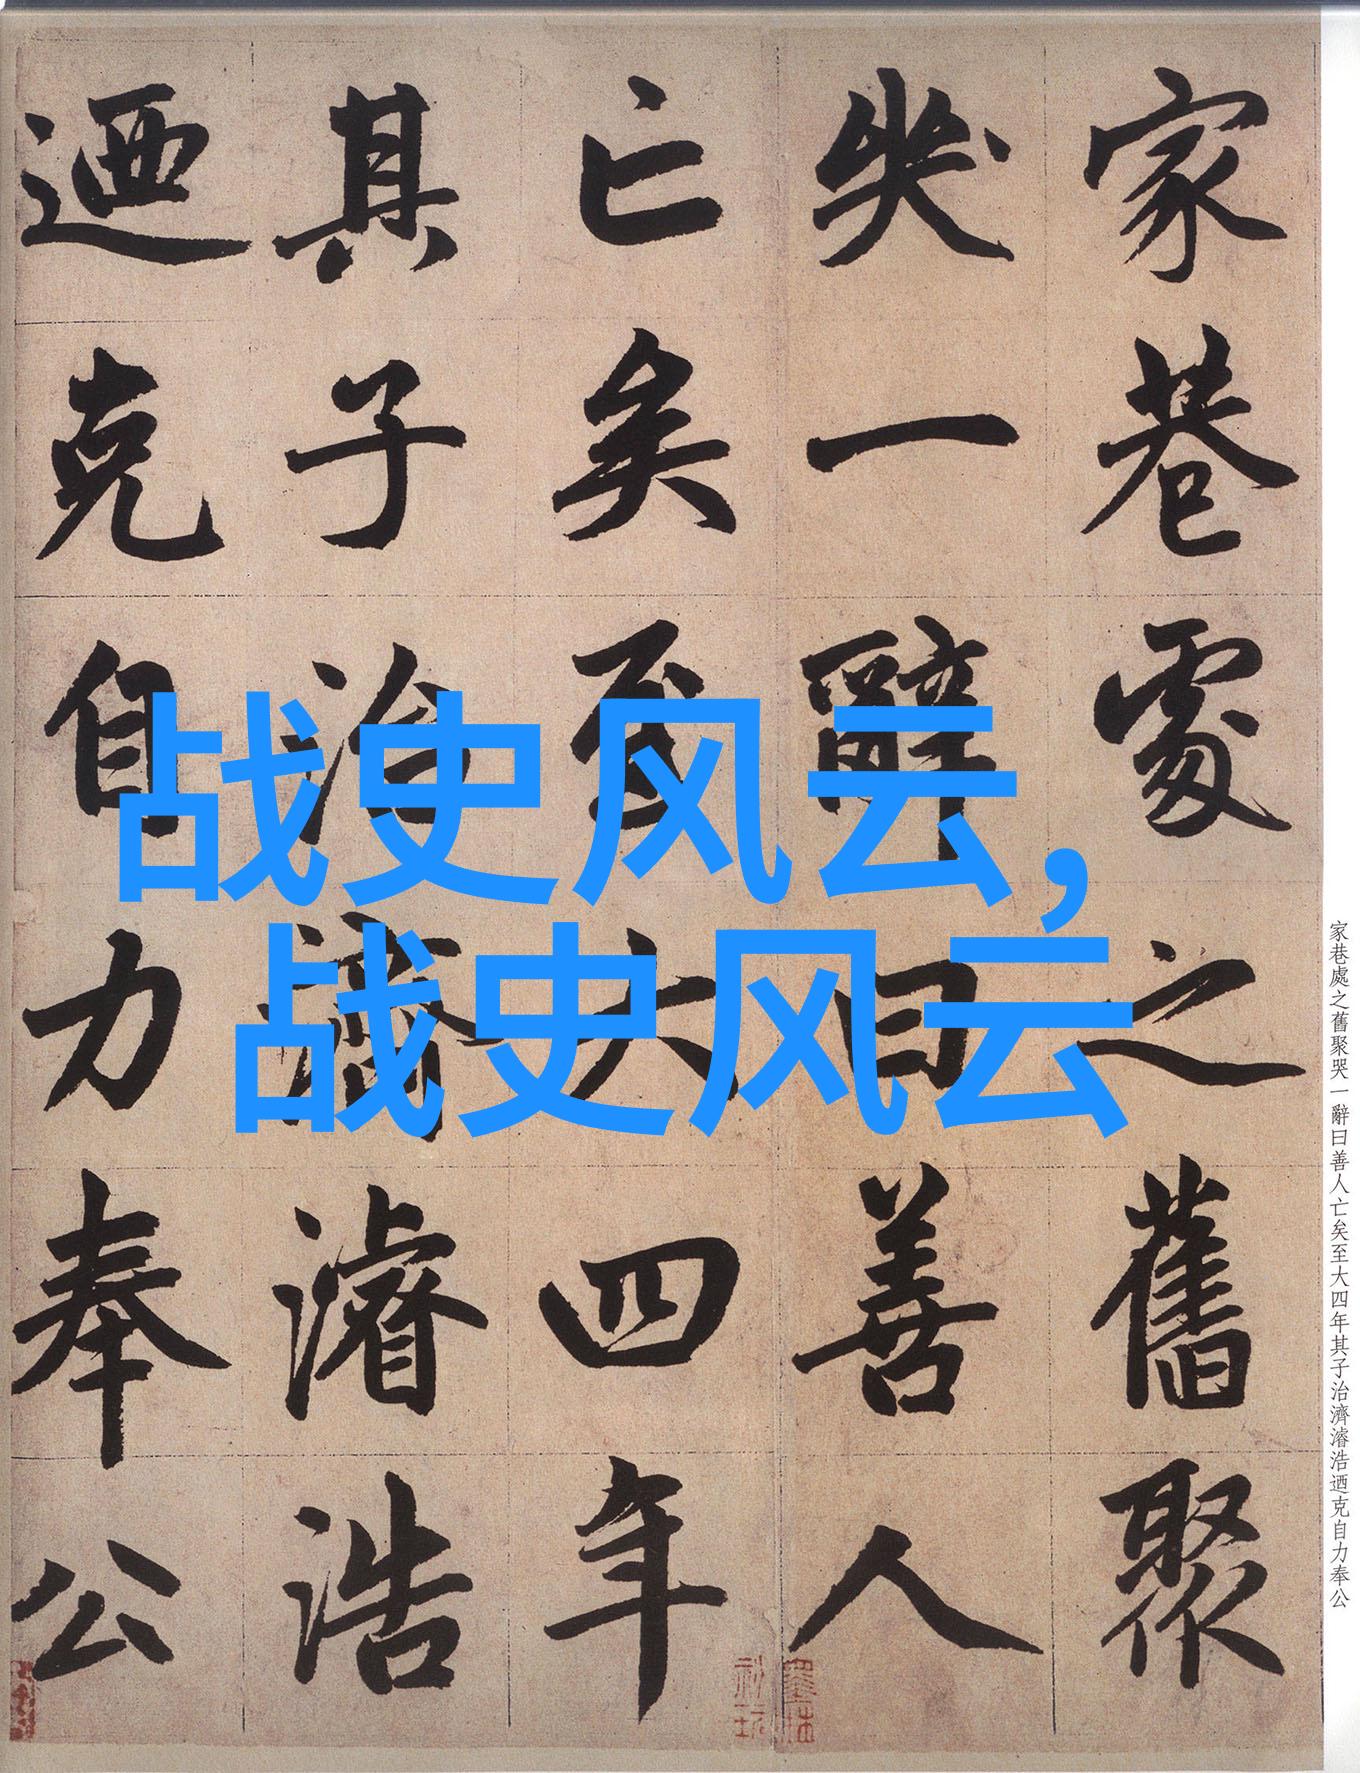 家巷處之舊聚
哭一辭曰善人
亡矣至大四年
其子治濟濬浩
迺克自力奉公
战史风云，
战史风云
家巷處之舊聚哭一辭曰善人亡矣至大四年其子治濟濬浩迺克自力奉公